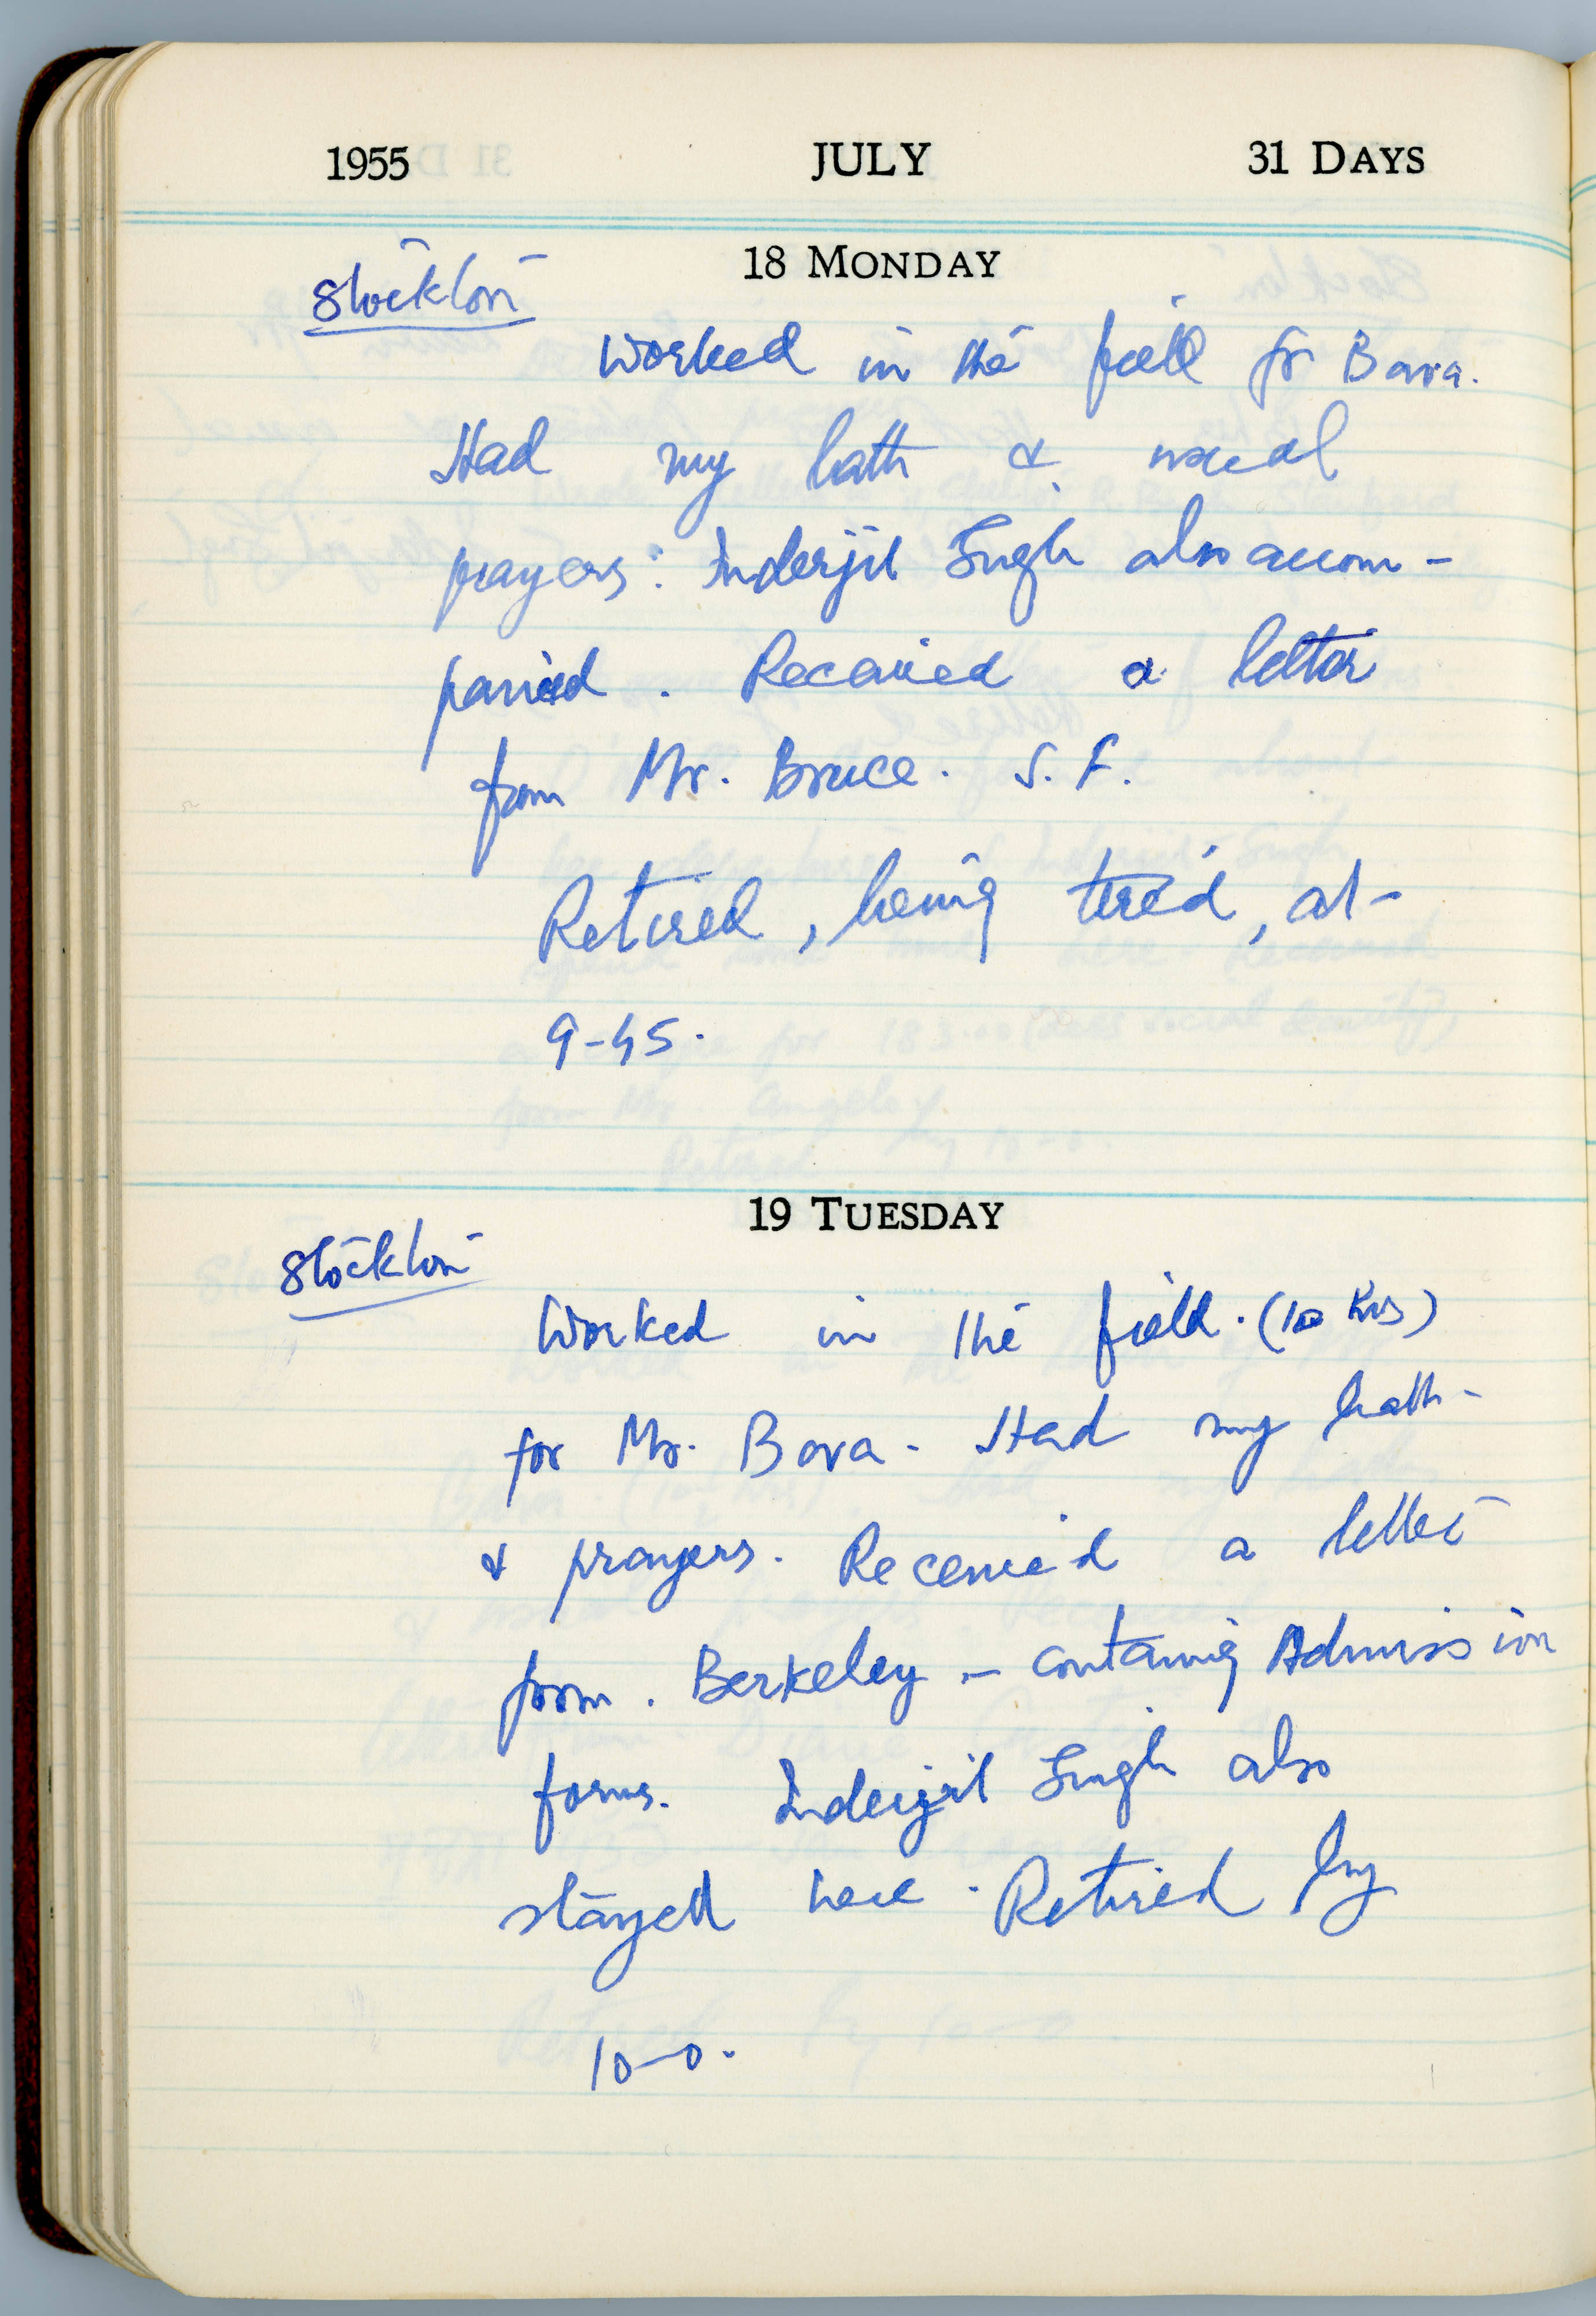 1955 JULY 31 DAYS
18 MONDAY
Stockton
Worked in the field for Bava.
Had my bath & usual
prayers. Inderjit Singh also accom-
panied. Received a letter
from Mr. Bruce. S. F.
Retired, being tired, at
9-45.
19 TUESDAY
Stockton
Worked in the field. (10 hrs)
for Mr. Bava. Had my bath
& prayers. Received a letter
from. Berkeley - containing Admission
forms. Inderjit Singh also
stayed here. Retired by
10-0.